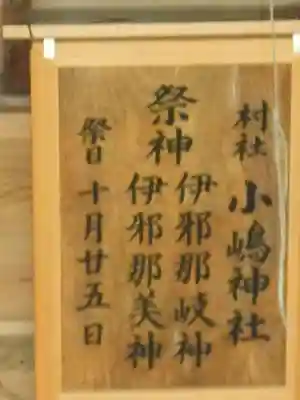 村社 小嶋神社
祭神 伊邪那岐神
伊邪那美神
祭日 十月廿五日